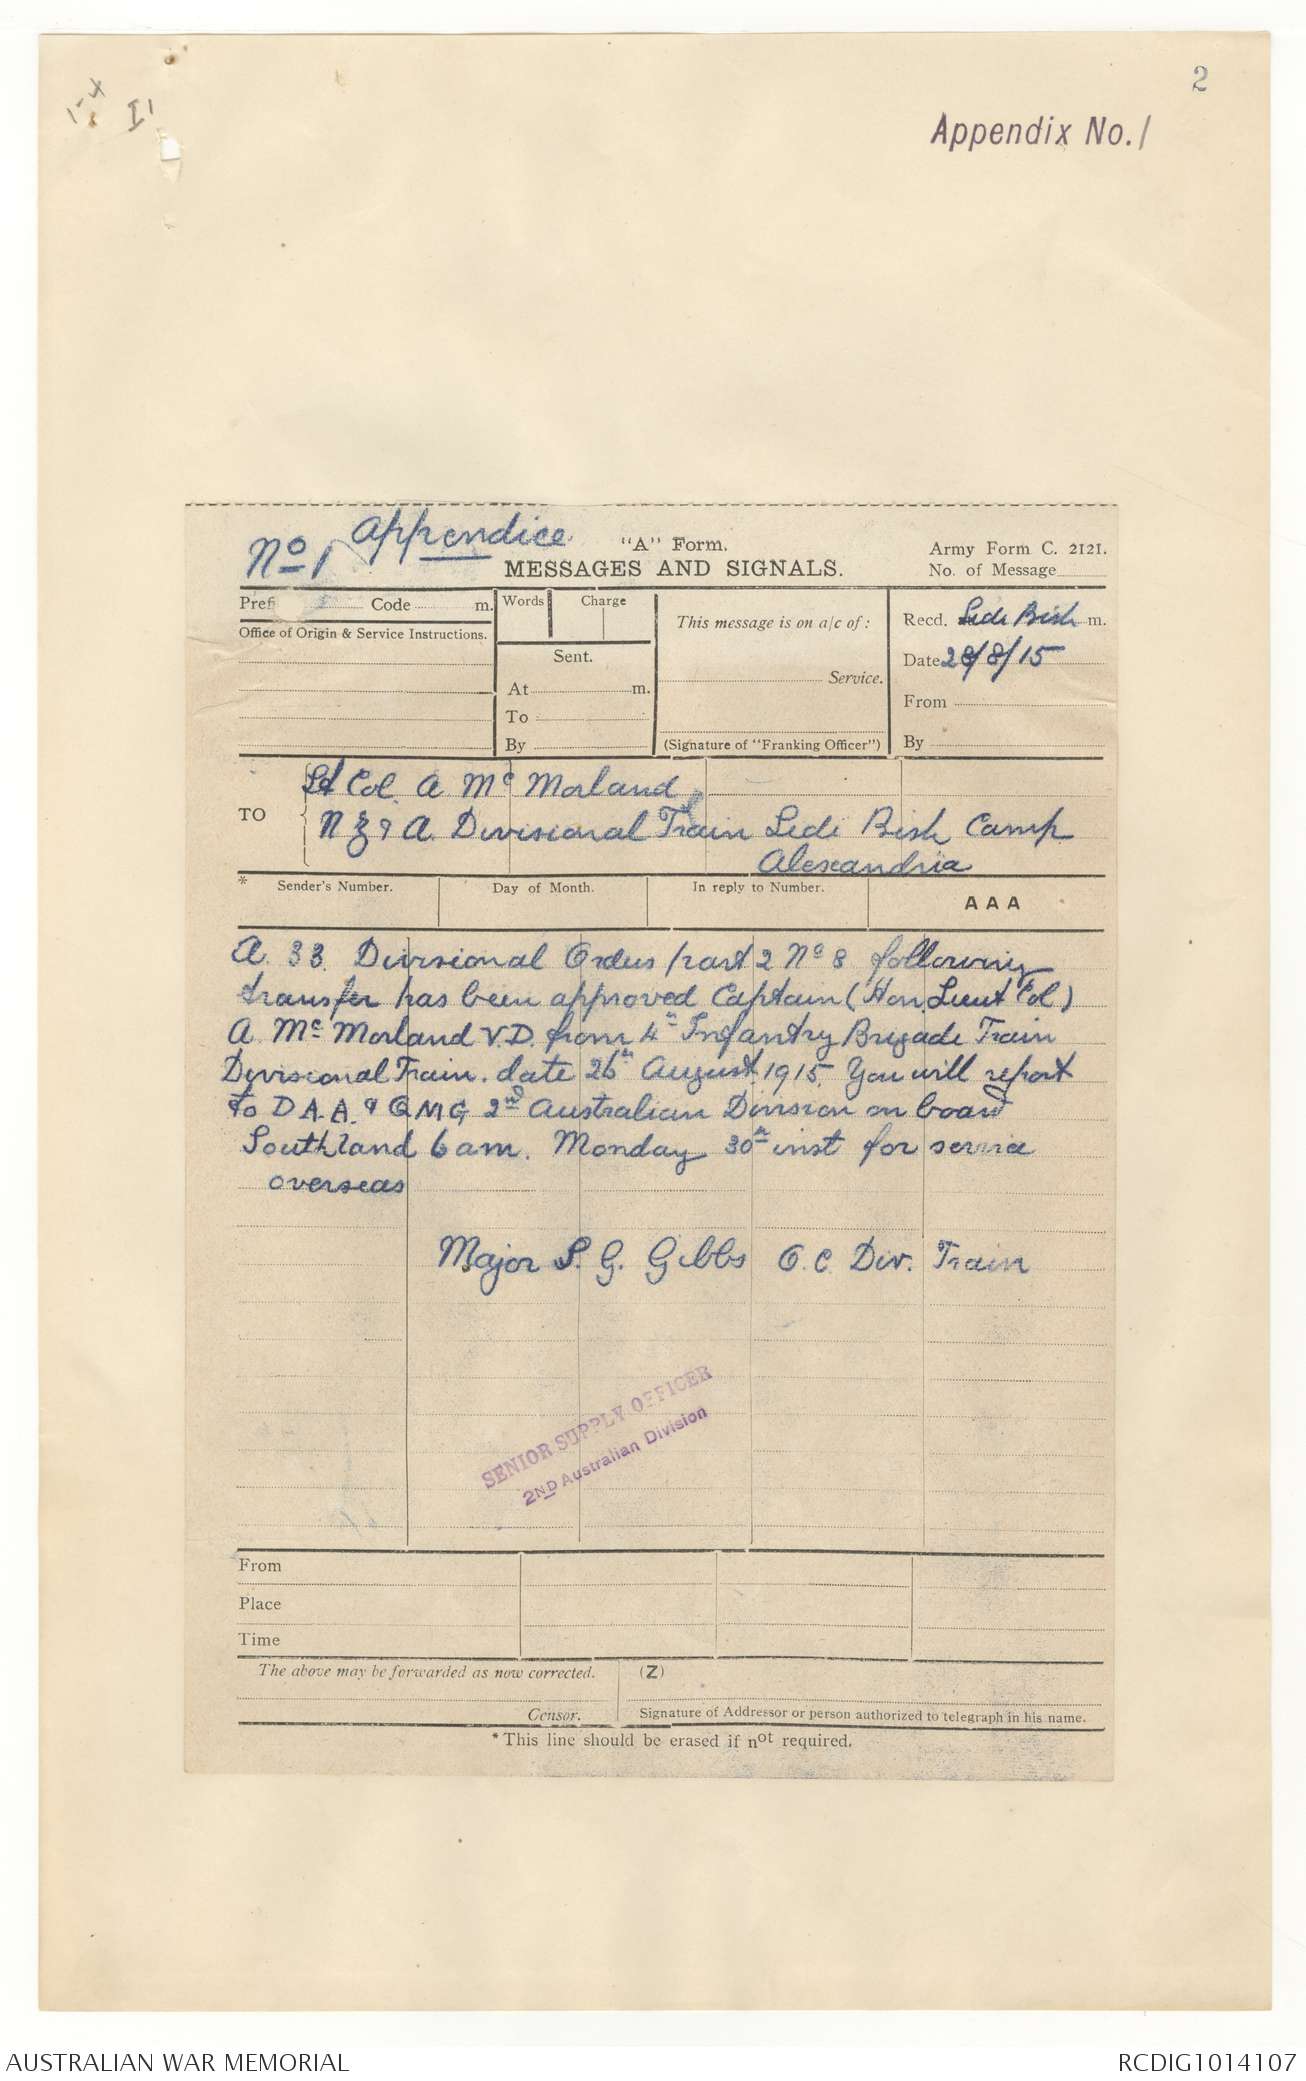 2
Appendix No. 1
No 1 appendice
"A" Form.
Army Form C. 2121.
MESSAGES AND SIGNALS.
No. of Message
Prefi Code m.
Words Charge
This message is on a/c of:
Recd. Sidi Bish m.
Office of Origin & Service Instructions.
Sent.
Service.
Date 28/8/15
At m.
From
To
By
(Signature of "Franking Officer")
By
TO
Lt Col. A Mc Morland
N Z & A. Divisional Train Sidi Bish Camp
Alexandria
* Sender's Number. Day of Month. In reply to Number. AAA
A. 33. Divisional Orders part 2 No 8 following
transfer has been approved Captain (Hon Lieut Col)
A Mc Morland V.D. from 4th Infantry Brigade Train
Divisional Train. date 26th August 1915. You will report
to D.A.A. & Q M G 2nd Australian Division on board
Southland 6 am. Monday 30th inst for service
overseas
Major S. G. Gibbs O.C. Div. Train
SENIOR SUPPLY OFFICER
2ND Australian Division
From
Place
Time
The above may be forwarded as now corrected. (Z)
Censor. Signature of Addressor or person authorized to telegraph in his name.
* This line should be erased if not required.
AUSTRALIAN WAR MEMORIAL RCDIG1014107